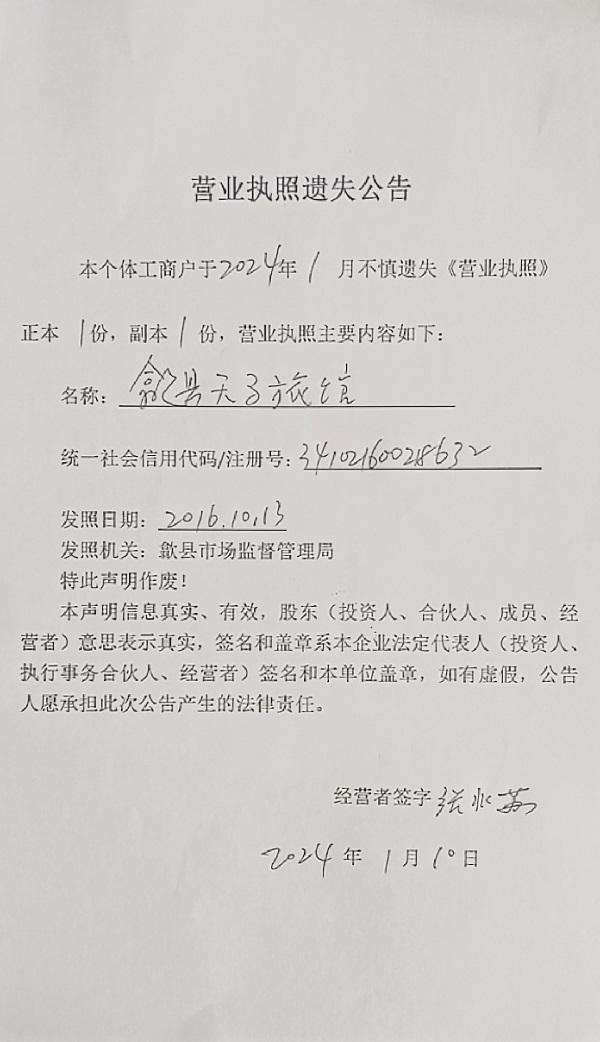 营业执照遗失公告
本个体工商户于2024年1月不慎遗失《营业执照》
正本1份，副本1份，营业执照主要内容如下：
名称：歙县天子旅馆
统一社会信用代码/注册号：341021600218632
发照日期：2016.10.13
发照机关：歙县市场监督管理局
特此声明作废！
本声明信息真实、有效，股东（投资人、合伙人、成员、经
营者）意思表示真实，签名和盖章系本企业法定代表人（投资人、
执行事务合伙人、经营者）签名和本单位盖章，如有虚假，公告
人愿承担此次公告产生的法律责任。
经营者签字 张水
2024年1月10日